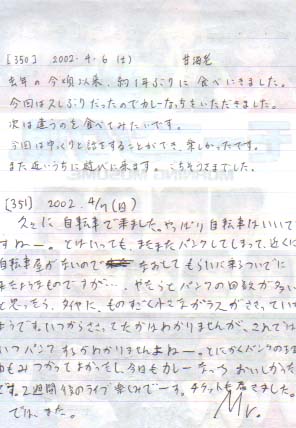 [350] 2002.4.6 (土)
去年の今頃以来、約1年ぶりに食べにきました。
今回は久しぶりだったのでカレーなっちをいただきました。
次は違うのを食べてみたいです。
今回はゆっくりと話をすることができ、楽しかったです。
また近いうちに遊びに来ます。ごちそうさまでした。
[351] 2002.4/7(日)
久々に自転車で来ました。やっぱり自転車はいいで
すねー。とはいっても、またまたパンクしてしまって、近くに
自転車屋がないので なおしてもらいに来るついでに
ようなものですが…。やたらとパンクの回数が多い
と思ったら、タイヤに、ものすごく小さなガラスがささっていた
ようです。いつからささってたかはわかりませんが、これでは
いつパンクするかわかりませんよねー。とにかくパンクの
もみつかってよかったし、今日もカレーなっちおいしかった
です。2週間後のライブ楽しみでーす。チケットも届きました。
では、また。 Mr.